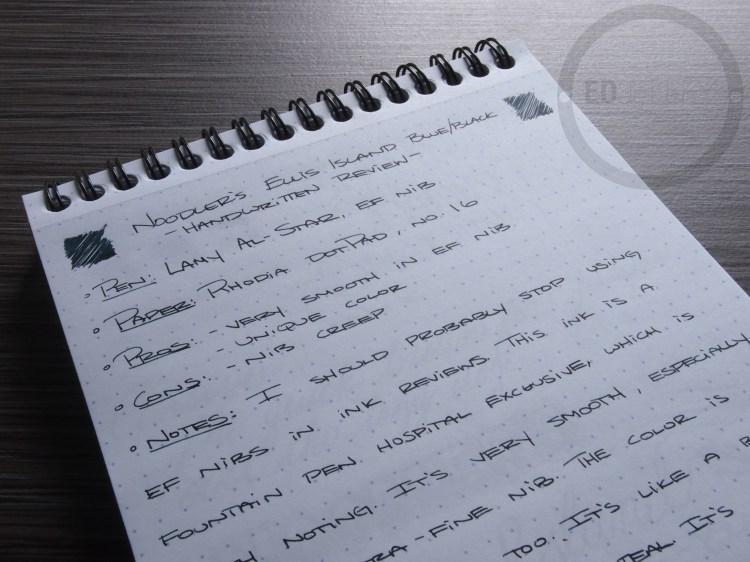 Noodler's Ellis Island Blue/Black
- Handwritten Review -
• Pen: Lamy Al-Star, EF nib
• Paper: Rhodia dotPad, No. 16
• Pros: - very smooth in EF nib
- unique color
• Cons: - nib creep
• Notes: I should probably stop using
EF nibs in ink reviews. This ink is a
Fountain Pen Hospital exclusive, which is
noting. It's very smooth, especially
-fine nib. The color is
too. It's like a
It's
ED